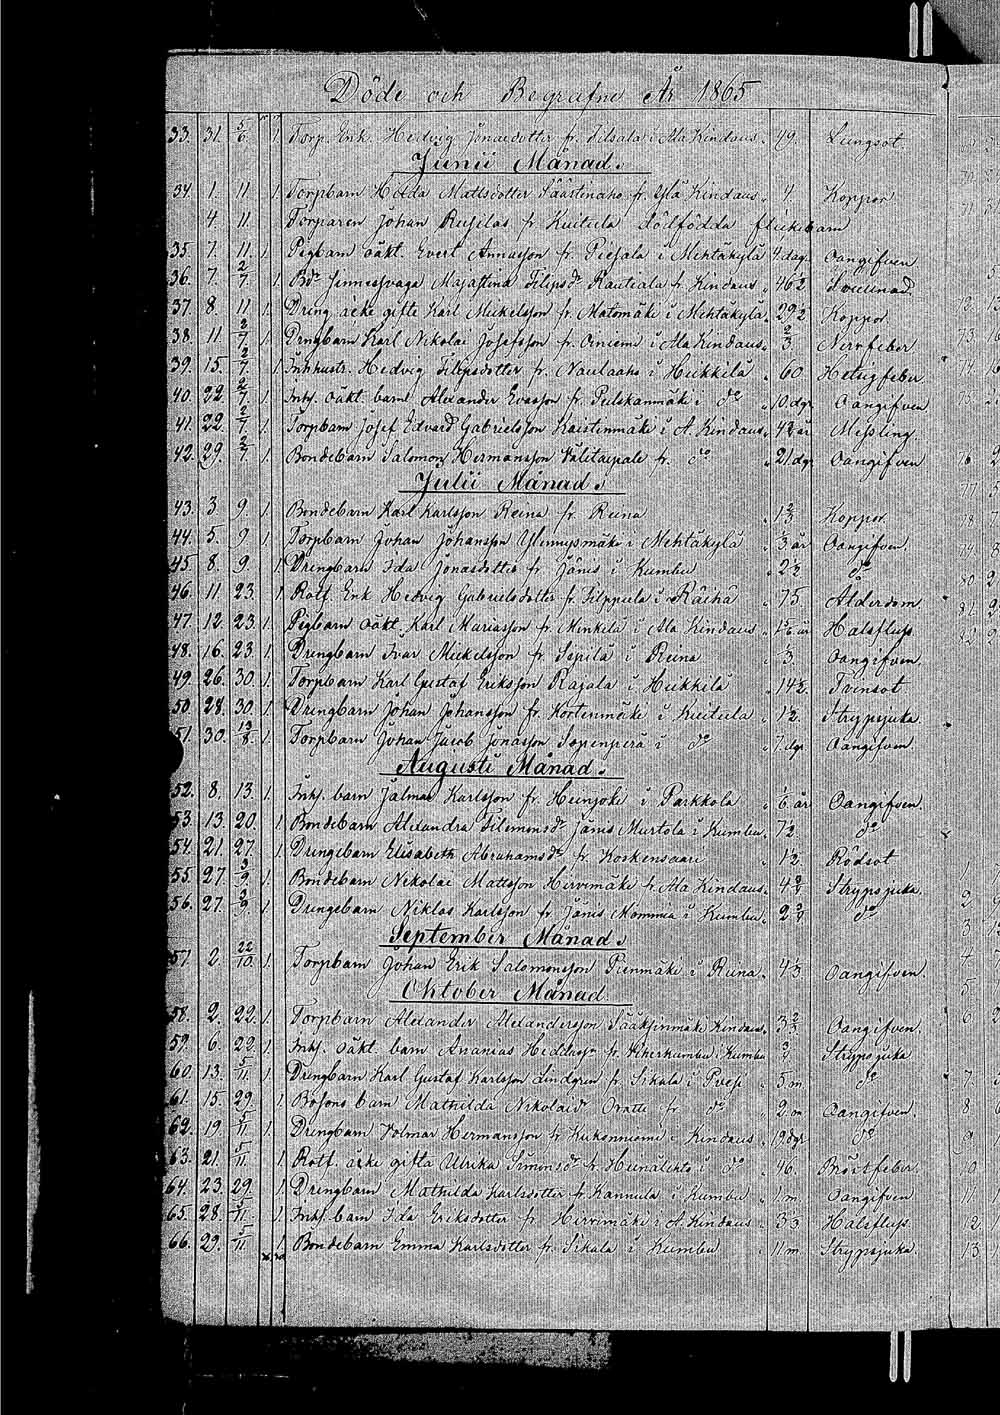 Döde och Begrafne År 1865
33. 31. 5/6. 1. Torp. Enk. Hedvig Jonaedotter fr. Filsala i Ala Kindaus. 49. Lungsot.
Junii Månad.
34. 1. 11. 1. Torpbarn Hedda Mattsdotter Säästinaho fr. Ylä Kindaus 4 Koppor
4. 11. Torparen Johan Rusilas fr. Kuitula dödfödda flickebarn
35. 7. 11. 1. Pigbarn oäkt. Evert Annasson fr. Piesala i Mehtäkylä 4 dag. Oangifven
36. 7. 2/7. 1. Majastina Filipsdr Rauteala fr. Kindaus 46 1/2 Svullnad
37. 8. 11 1. Dreng äcke gifte Karl Mickelsson fr. Matomäki i Mehtäkylä 29 1/2 Koppor
38. 11 2/7. 1. Drngbarn Karl Nikolai Josefsson fr. Oiniemi i Ala Kindaus 2/3 Nervfeber
39. 15. 2/7. 1. Inhhustr. Hedvig Filipsdotter fr. Naulaaho i Heikkilä 60 Hetsigfeber
40. 22. 2/7. 1. Inhs. oäkt. barn Alexander Evasson fr. Pulskanmäki i do 10. dgr Oangifven
41. 22. 2/7. 1. Torpbarn Josef Edvard Gabrielsson Kaistinmäki i A. Kindaus 4 1/2 år Messling
42. 29. 2/7. 1. Bondebarn Salomon Hermansson Välitaipale fr. do 21. dgr Oangifven
Julii Månad.
43. 3. 9. 1. Bondebarn Karl Karlsson Reina fr. Reina 1 2/3 Koppor
44. 5. 9. 1. Torpbarn Johan Johansson i Mehtäkylä 1/3 år Oangifven.
45. 8. 9. 1. Drengbarn Ida Jonasdotter fr. Jänis i Kumbu 2 1/2 do
46. 11 23. 1. Rotf. Enk Hedvig Gabrielsdotter fr. Filppula i Räihä 75 Ålderdom.
47. 12. 23. 1. Pigbarn oäkt. Karl Mariasson fr. Minkila i Ala Kindaus 1 5/6 år Halsfluss
48. 16. 23. 1. Drengbarn Ivar Mickelsson fr. Seppilä i Reina 1/3. Oangifven.
49. 26. 30. 1. Torpbarn Karl Gustaf Eriksson Rajala i Heikkilä 14 1/2. Tvinsot
50. 28. 30. 1. Drengbarn Johan Johansson fr. Kortenmäki i Kuitula 1 1/2. Strypsjuka.
51. 30. 13/8. 1. Torpbarn Johan Jacob Jonasson Sopenperä i do 7. dgr Oangifven.
Augusti Månad.
52. 8. 13. 1. Inhs. barn Jalmar Karlsson fr. Heinjoki i Parkkola 1/6 år Oangifven.
53. 13. 20. 1. Bondebarn Alexandra Filemonsdr Jänis Murtola i Kumbu 7 1/2 do
54. 21. 27. 1. Drengebarn Elisabeth Abrahamsdr fr. Koskensaari 1 1/2. Rödsot
55. 27. 3/9. 1. Bondebarn Nikolai Mattsson Hirvimäki fr. Ala Kindaus 4 3/4 Strypsjuka.
56. 27. 3/9. 1. Drengebarn Niklas Karlsson fr. Jänis Momma i Kumbu 2 3/4. do
September Månad.
57. 2. 22/10. 1. Torpbarn Johan Erik Salomonsson Pienmäki i Reina 4 1/3 Oangifven.
Oktober Månad.
58. 2. 22. 1. Torpbarn Alexander Alexandersson Sääksjinmäki Kindaus. 3 2/3 Oangifven.
59. 6. 22. 1. Inhs. oäkt. barn Ananias fr. i Kumbu Strypsjuka
60. 13. 5/11. 1. Drengbarn Karl Gustaf Karlsson Lindgren fr. Sikala i 5. m. do
61. 15. 29. 1. barn Mathilda Nikolaid. fr. do 2. m Oangifven.
62. 19. 5/11. 1. Drengbarn Volmar Hermansson fr. Kukonniemi i Kindaus 19 dgr do
63. 21. 5/11. 1. Rotf. äcke gifta Ulrika Simonsdr fr. Heinälehto i do 46. Bröstfeber.
64. 23. 29. 1. Drengbarn Mathilda Karlsdotter fr. Kannula i Kumbu 1. m. Oangifven
65. 28. 5/11. 1. Inhs. barn Ida Eriksdotter fr. Hirvimäki i A. Kindaus 3 1/3 Halsfluss
66. 29. 5/11. 1. Bondebarn Emma Karlsdotter fr. Sikala i Kumbu 11 m. Strypsjuka